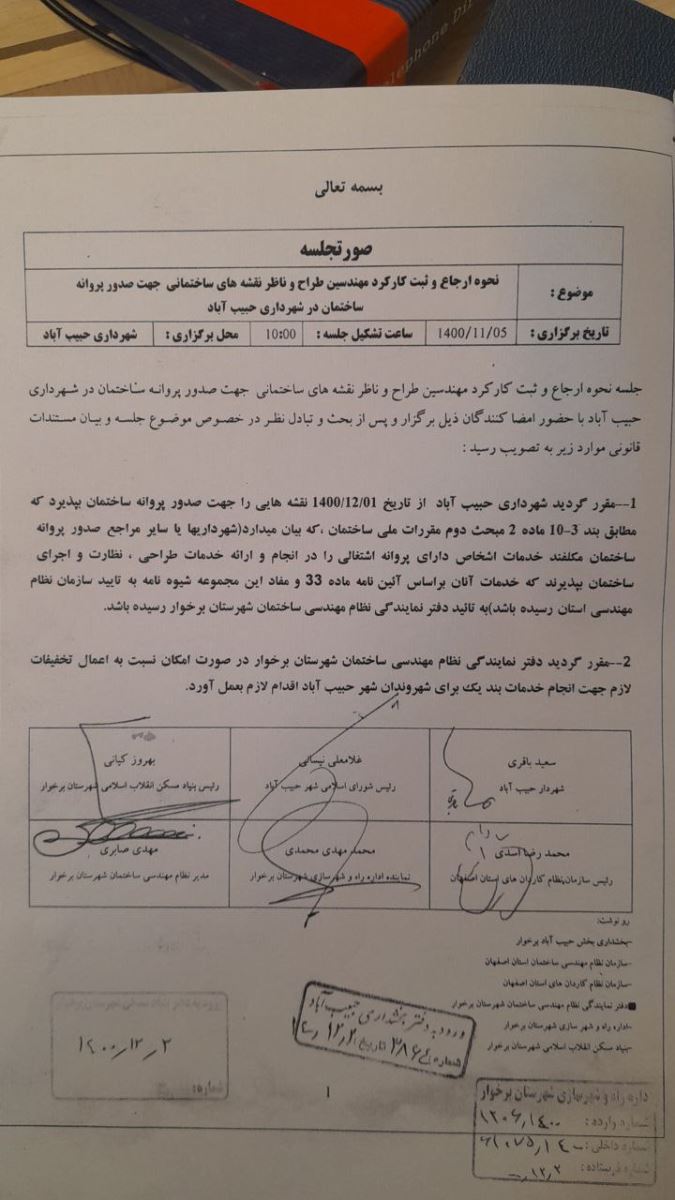 elephone Di
بسمه تعالی
صورتجلسه
موضوع : نحوه ارجاع و ثبت کارکرد مهندسین طراح و ناظر نقشه های ساختمانی جهت صدور پروانه
ساختمان در شهرداری حبیب آباد
تاریخ برگزاری : 1400/11/05 ساعت تشکیل جلسه : 10:00 محل برگزاری : شهرداری حبیب آباد
جلسه نحوه ارجاع و ثبت کارکرد مهندسین طراح و ناظر نقشه های ساختمانی جهت صدور پروانه ساختمان در شهرداری
حبیب آباد با حضور امضا کنندگان ذیل برگزار و پس از بحث و تبادل نظر در خصوص موضوع جلسه و بیان مستندات
قانونی موارد زیر به تصویب رسید :
1--مقرر گردید شهرداری حبیب آباد از تاریخ 1400/12/01 نقشه هایی را جهت صدور پروانه ساختمان بپذیرد که
مطابق بند 3-10 ماده 2 مبحث دوم مقررات ملی ساختمان ،که بیان میدارد(شهرداریها یا سایر مراجع صدور پروانه
ساختمان مکلفند خدمات اشخاص دارای پروانه اشتغالی را در انجام و ارائه خدمات طراحی ، نظارت و اجرای
ساختمان بپذیرند که خدمات آنان براساس آئین نامه ماده 33 و مفاد این مجموعه شیوه نامه به تایید سازمان نظام
مهندسی استان رسیده باشد)به تائید دفتر نمایندگی نظام مهندسی ساختمان شهرستان برخوار رسیده باشد.
2--مقرر گردید دفتر نمایندگی نظام مهندسی ساختمان شهرستان برخوار در صورت امکان نسبت به اعمال تخفیفات
لازم جهت انجام خدمات بند یک برای شهروندان شهر حبیب آباد اقدام لازم بعمل آورد.
سعید باقری
شهردار حبیب آباد
غلامعلی نیسانی
رئیس شورای اسلامی شهر حبیب آباد
بهروز کیانی
رئیس بنیاد مسکن انقلاب اسلامی شهرستان برخوار
محمد رضا اسدی
رئیس سازمان نظام کاردان های استان اصفهان
محمد مهدی محمدی
نماینده اداره راه و شهرسازی شهرستان برخوار
مهدی صابری
مدیر نظام مهندسی ساختمان شهرستان برخوار
رو نوشت:
-بخشداری بخش حبیب آباد برخوار
-سازمان نظام مهندسی ساختمان استان اصفهان
-سازمان نظام کاردان های استان اصفهان
دفتر نمایندگی نظام مهندسی ساختمان شهرستان برخوار
-اداره راه و شهر سازی شهرستان برخوار
-بنیاد مسکن انقلاب اسلامی شهرستان برخوار
ورود به دفتر بخشداری حبیب آباد
شماره تاریخ
۱۴۰۰,۱۲,۲
شماره:
1
داره راه و شهرسازی شهرستان برخوار
شماره وارده :
شماره داخلی :
شماره فرستاده :